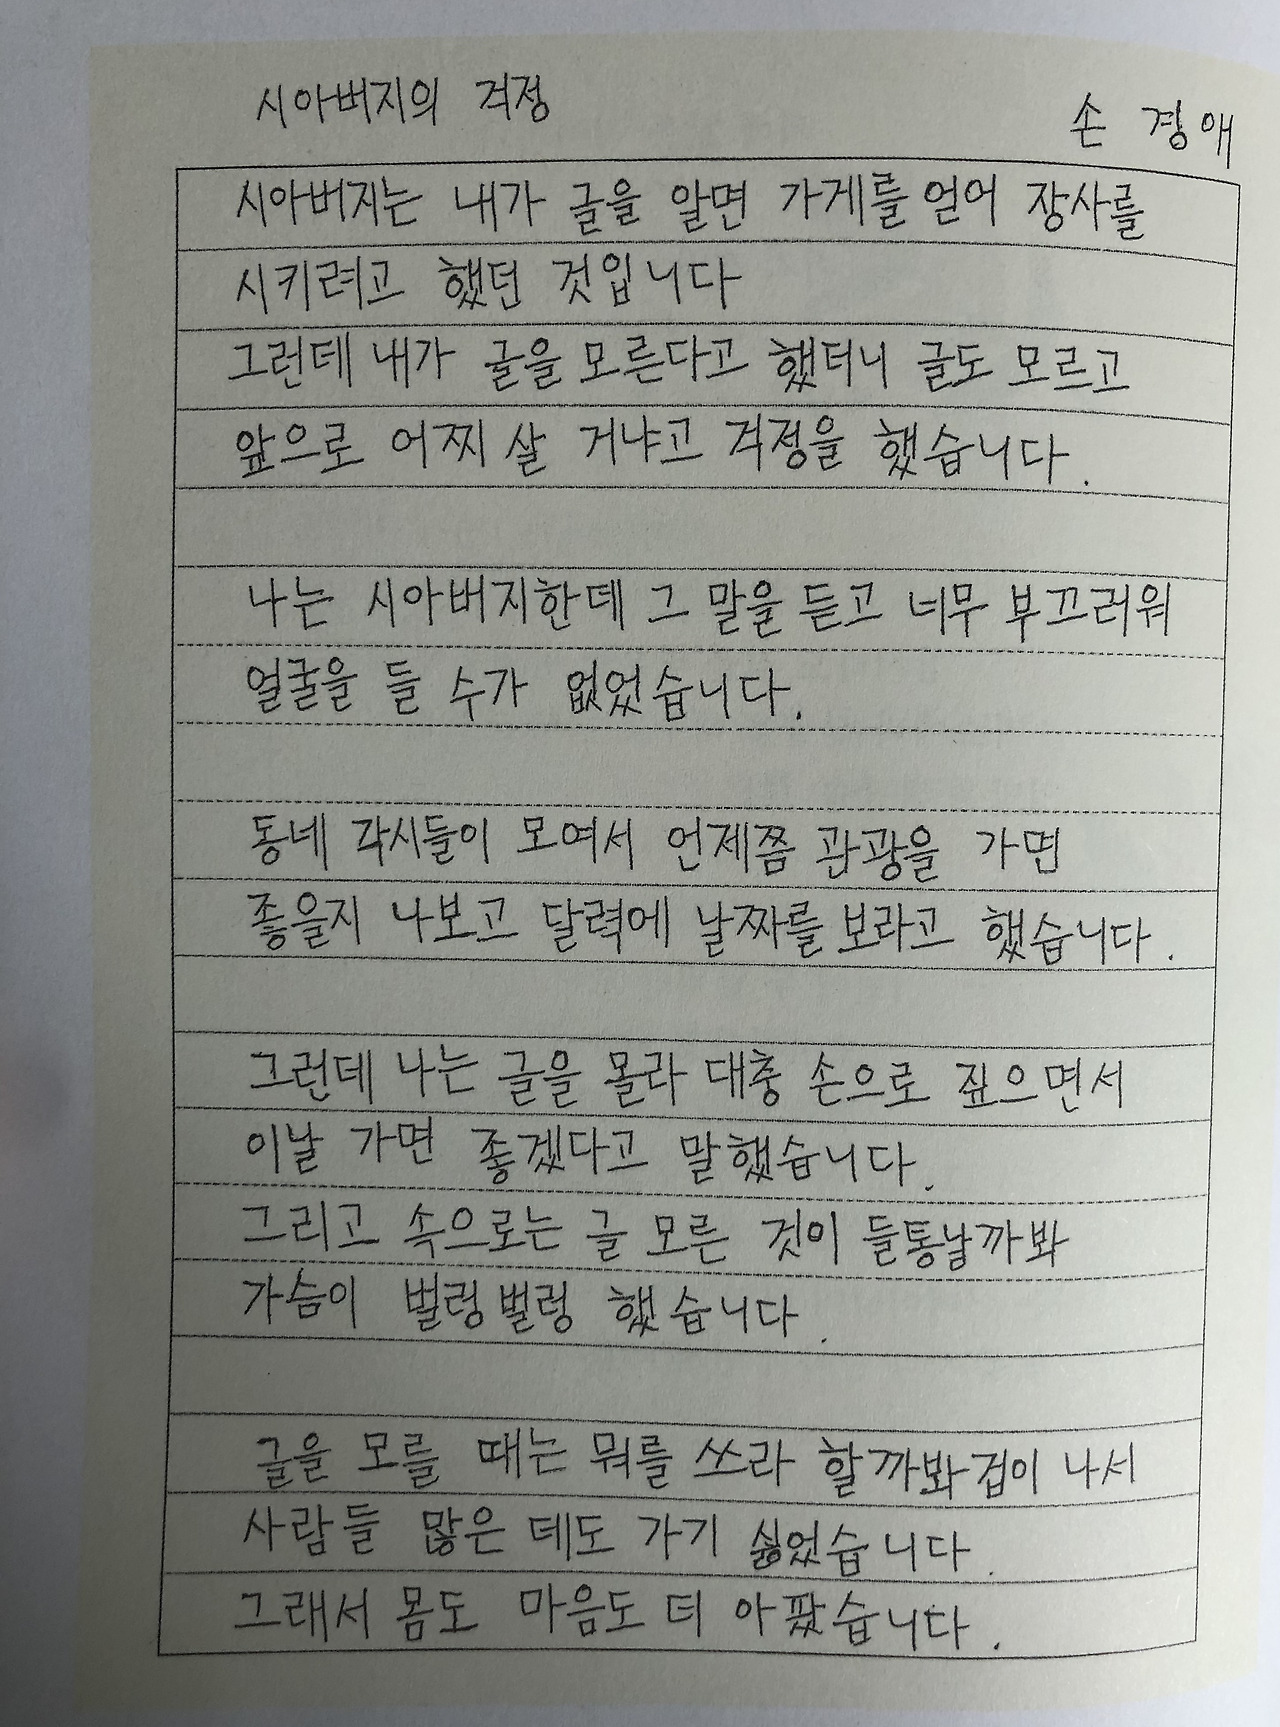 시아버지의 걱정
손 경애
시아버지는 내가 글을 알면 가게를 얻어 장사를
시키려고 했던 것입니다
그런데 내가 글을 모른다고 했더니 글도 모르고
앞으로 어찌 살 거냐고 걱정을 했습니다.
나는 시아버지한데 그 말을 듣고 너무 부끄러워
얼굴을 들 수가 없었습니다.
동네 각시들이 모여서 언제쯤 관광을 가면
좋을지 나보고 달력에 날짜를 보라고 했습니다.
그런데 나는 글을 몰라 대충 손으로 짚으면서
이날 가면 좋겠다고 말했습니다.
그리고 속으로는 글 모른 것이 들통날까봐
가슴이 벌렁벌렁 했습니다.
글을 모를 때는 뭐를 쓰라 할까봐 겁이 나서
사람들 많은 데도 가기 싫었습니다.
그래서 몸도 마음도 더 아팠습니다.